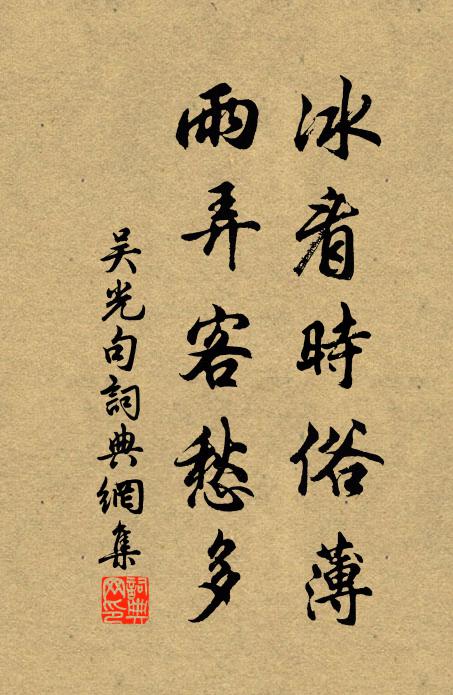 冰看時俗薄
雨弄客愁多
吴光句詞典網集
詞典网印